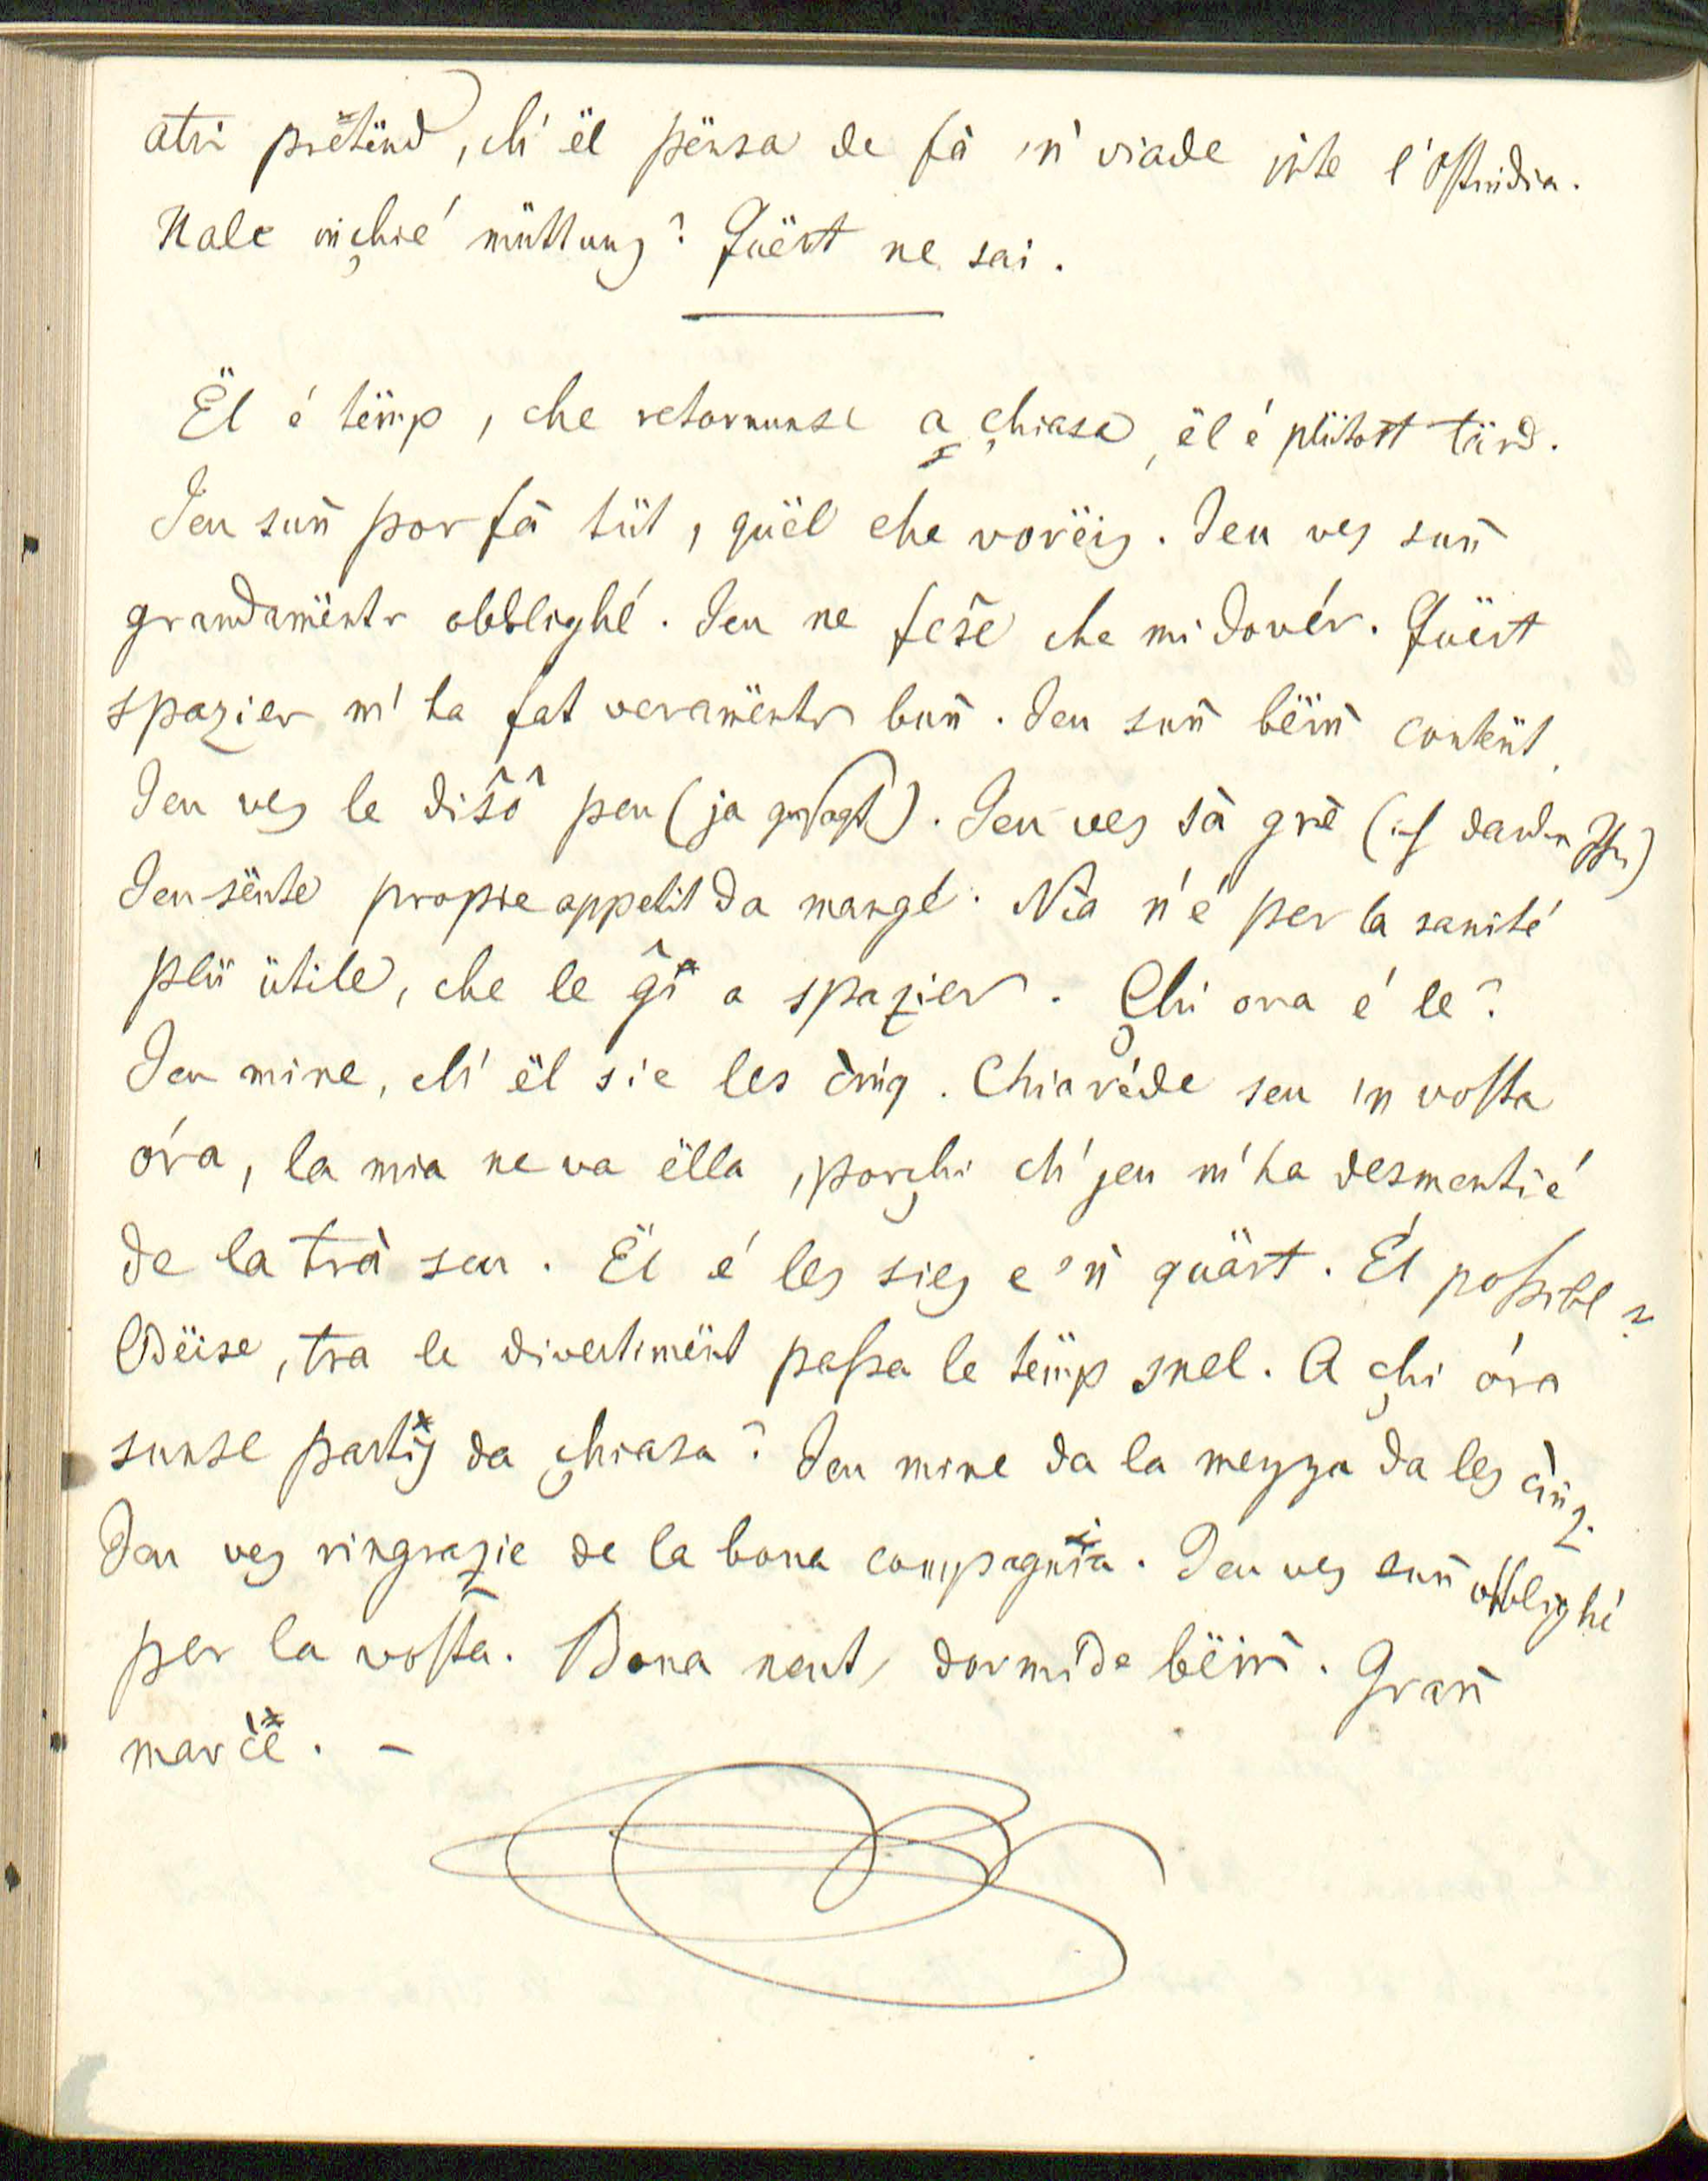 atri pretënd, ch' ël pënsa de fà 'n' viade inte l'Ostindia.
Nale inchie' müttung? Quëst ne sai.
Ël é tëmp, che retornunse a chiasa, ël é plütost tärd.
Jeu suñ por fà tüt, quël che vorëis. Jeu ves suñ
grandamëntr obblighé. Jeu ne feše che mi dovér. Quëst
spazier m' ha fat veramëntr buñ. Jeu suñ bëiñ contënt,
Jeu ves le dišô peu (ja gesagt). Jeu ves sà grè (ich danke Ihn)
Jeu sënte propre appetit da mangé. Nia n'é per la sanité
plü ütile, che le gî a spazier. Chi ora é le?
Jeu mine, ch' ël sie les cinq. Chiaréde seu in vosta
óra, la mia ne va ëlla, porchi ch' jeu m'ha desmentié
de la trà seu. Ël é les sies e 'ñ quärt. Él possibl?
Odëise, tra le divertimënt passa le tëmp snel. A chi óra
sunse partis da chiasa? Jeu mine da la mezza da les cinq.
Jeu ves ringrazie de la bona compagnia. Jeu ves suñ obblighé
per la vosta. Bona neut, dormide bëiñ. Grañ
marcé. –